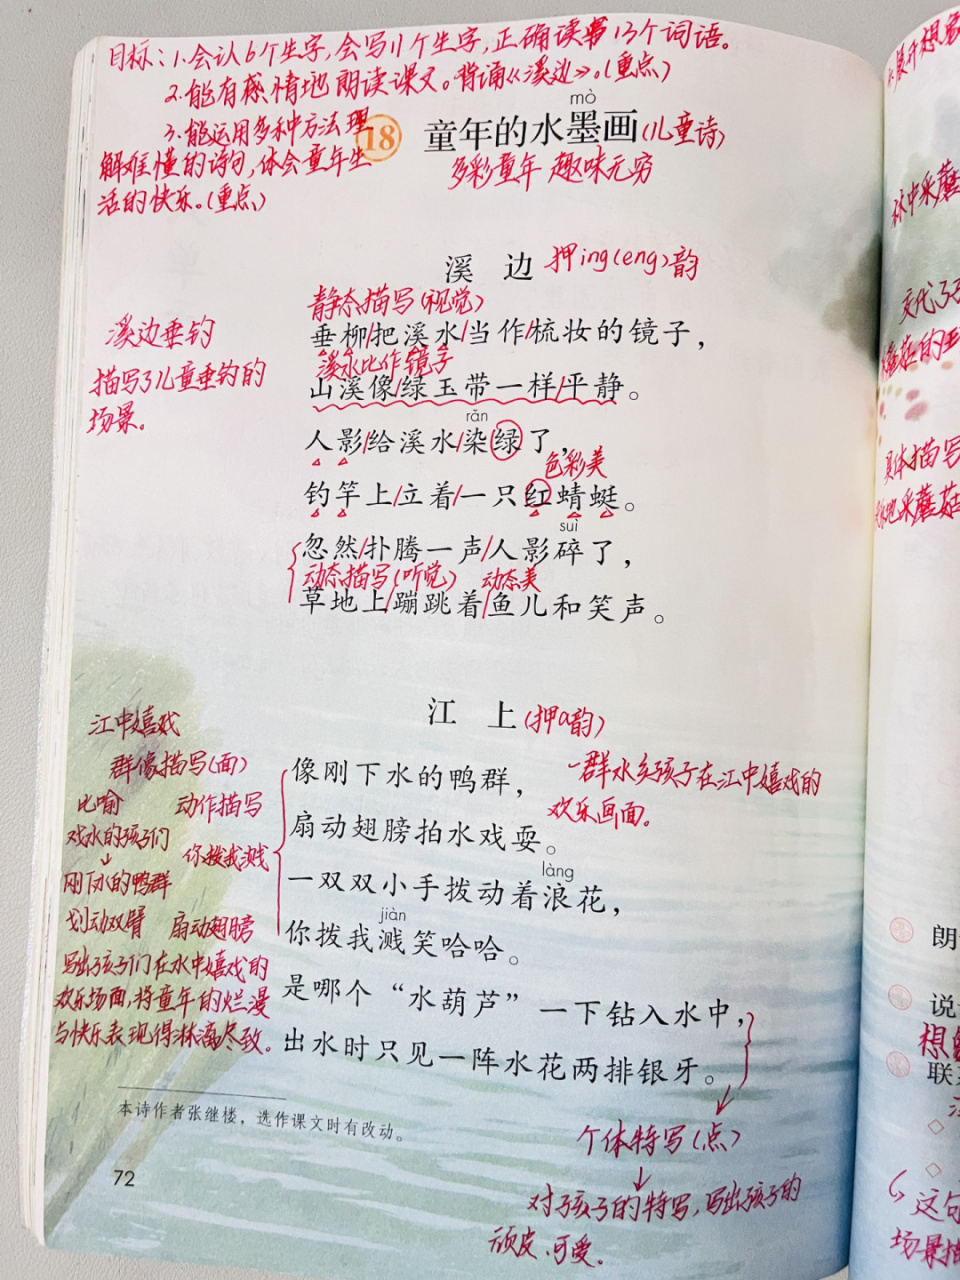 目标：1.会认6个生字，会写11个生字，正确读书13个词语。
2.能有感情地朗读课文。背诵《溪边》。(重点)
3.能运用多种方法理
解难懂的诗句，体会童年生
活的快乐。(重点)
mò
18 童年的水墨画(儿童诗)
多彩童年 趣味无穷
溪 边 押ing(eng)韵
静态描写(视觉)
溪边垂钓
描写了儿童垂钓的
场景。
垂柳/把溪水/当作/梳妆的镜子，
溪水比作镜子
山溪像/绿玉带一样/平静。
rǎn
人影/给溪水/染绿了，
色彩美
钓竿上/立着/一只红蜻蜓。
suì
忽然/扑腾一声/人影碎了，
动态描写(听觉) 动态美
草地上/蹦跳着/鱼儿和笑声。
江 上 (押a韵)
江中嬉戏
群像描写(面)
比喻 动作描写
戏水的孩子们
↓ 你拨我溅
刚下水的鸭群
划动双臂 扇动翅膀
写出孩子们在水中嬉戏的
欢乐场面，将童年的烂漫
与快乐表现得淋漓尽致。
像刚下水的鸭群，
一群水乡孩子在江中嬉戏的
欢乐画面。
扇动翅膀拍水戏耍。
làng
一双双小手拨动着浪花，
jiàn
你拨我溅笑哈哈。
是哪个“水葫芦”一下钻入水中，
出水时只见一阵水花两排银牙。
个体特写(点)
↓
对孩子的特写，写出孩子的
顽皮、可爱。
本诗作者张继楼，选作课文时有改动。
72
林中采蘑
具体描写
地采蘑菇
朗
说
想
联
◇
◇
这句
场景描